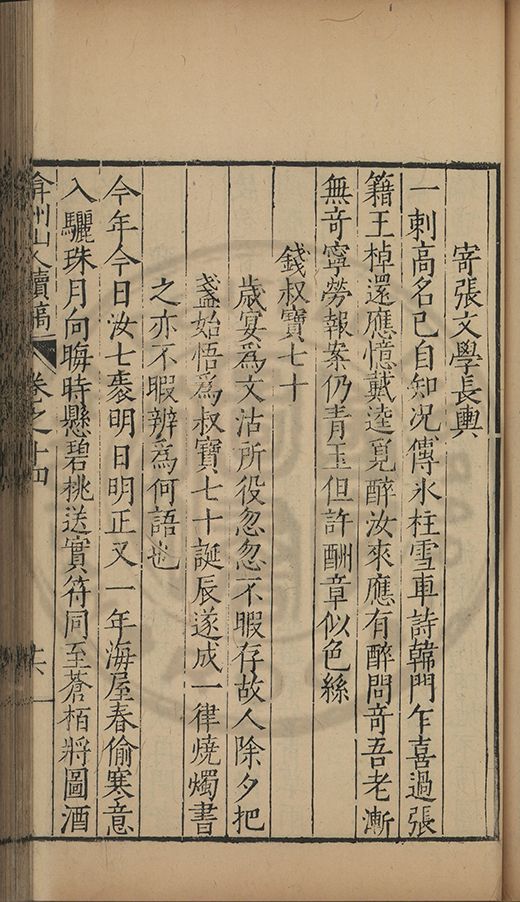 寄張文學長輿
一刺高名已自知况傳氷柱雪車詩韓門乍喜過張
籍王棹還應憶戴逵覓醉汝來應有醉問竒吾老漸
無竒寧勞報案仍青玉但許酬章似色絲
錢叔寶七十
歲宴爲文沽所役忽忽不暇存故人除夕把
盞始悟爲叔寶七十誕辰遂成一律燒燭書
之亦不暇辨爲何語也
今年今日汝七袠明日明正又一年海屋春偷寒意
入驪珠月向晦時懸碧桃送實符同至蒼栢將圖酒
弇州山人續稿 卷之十四